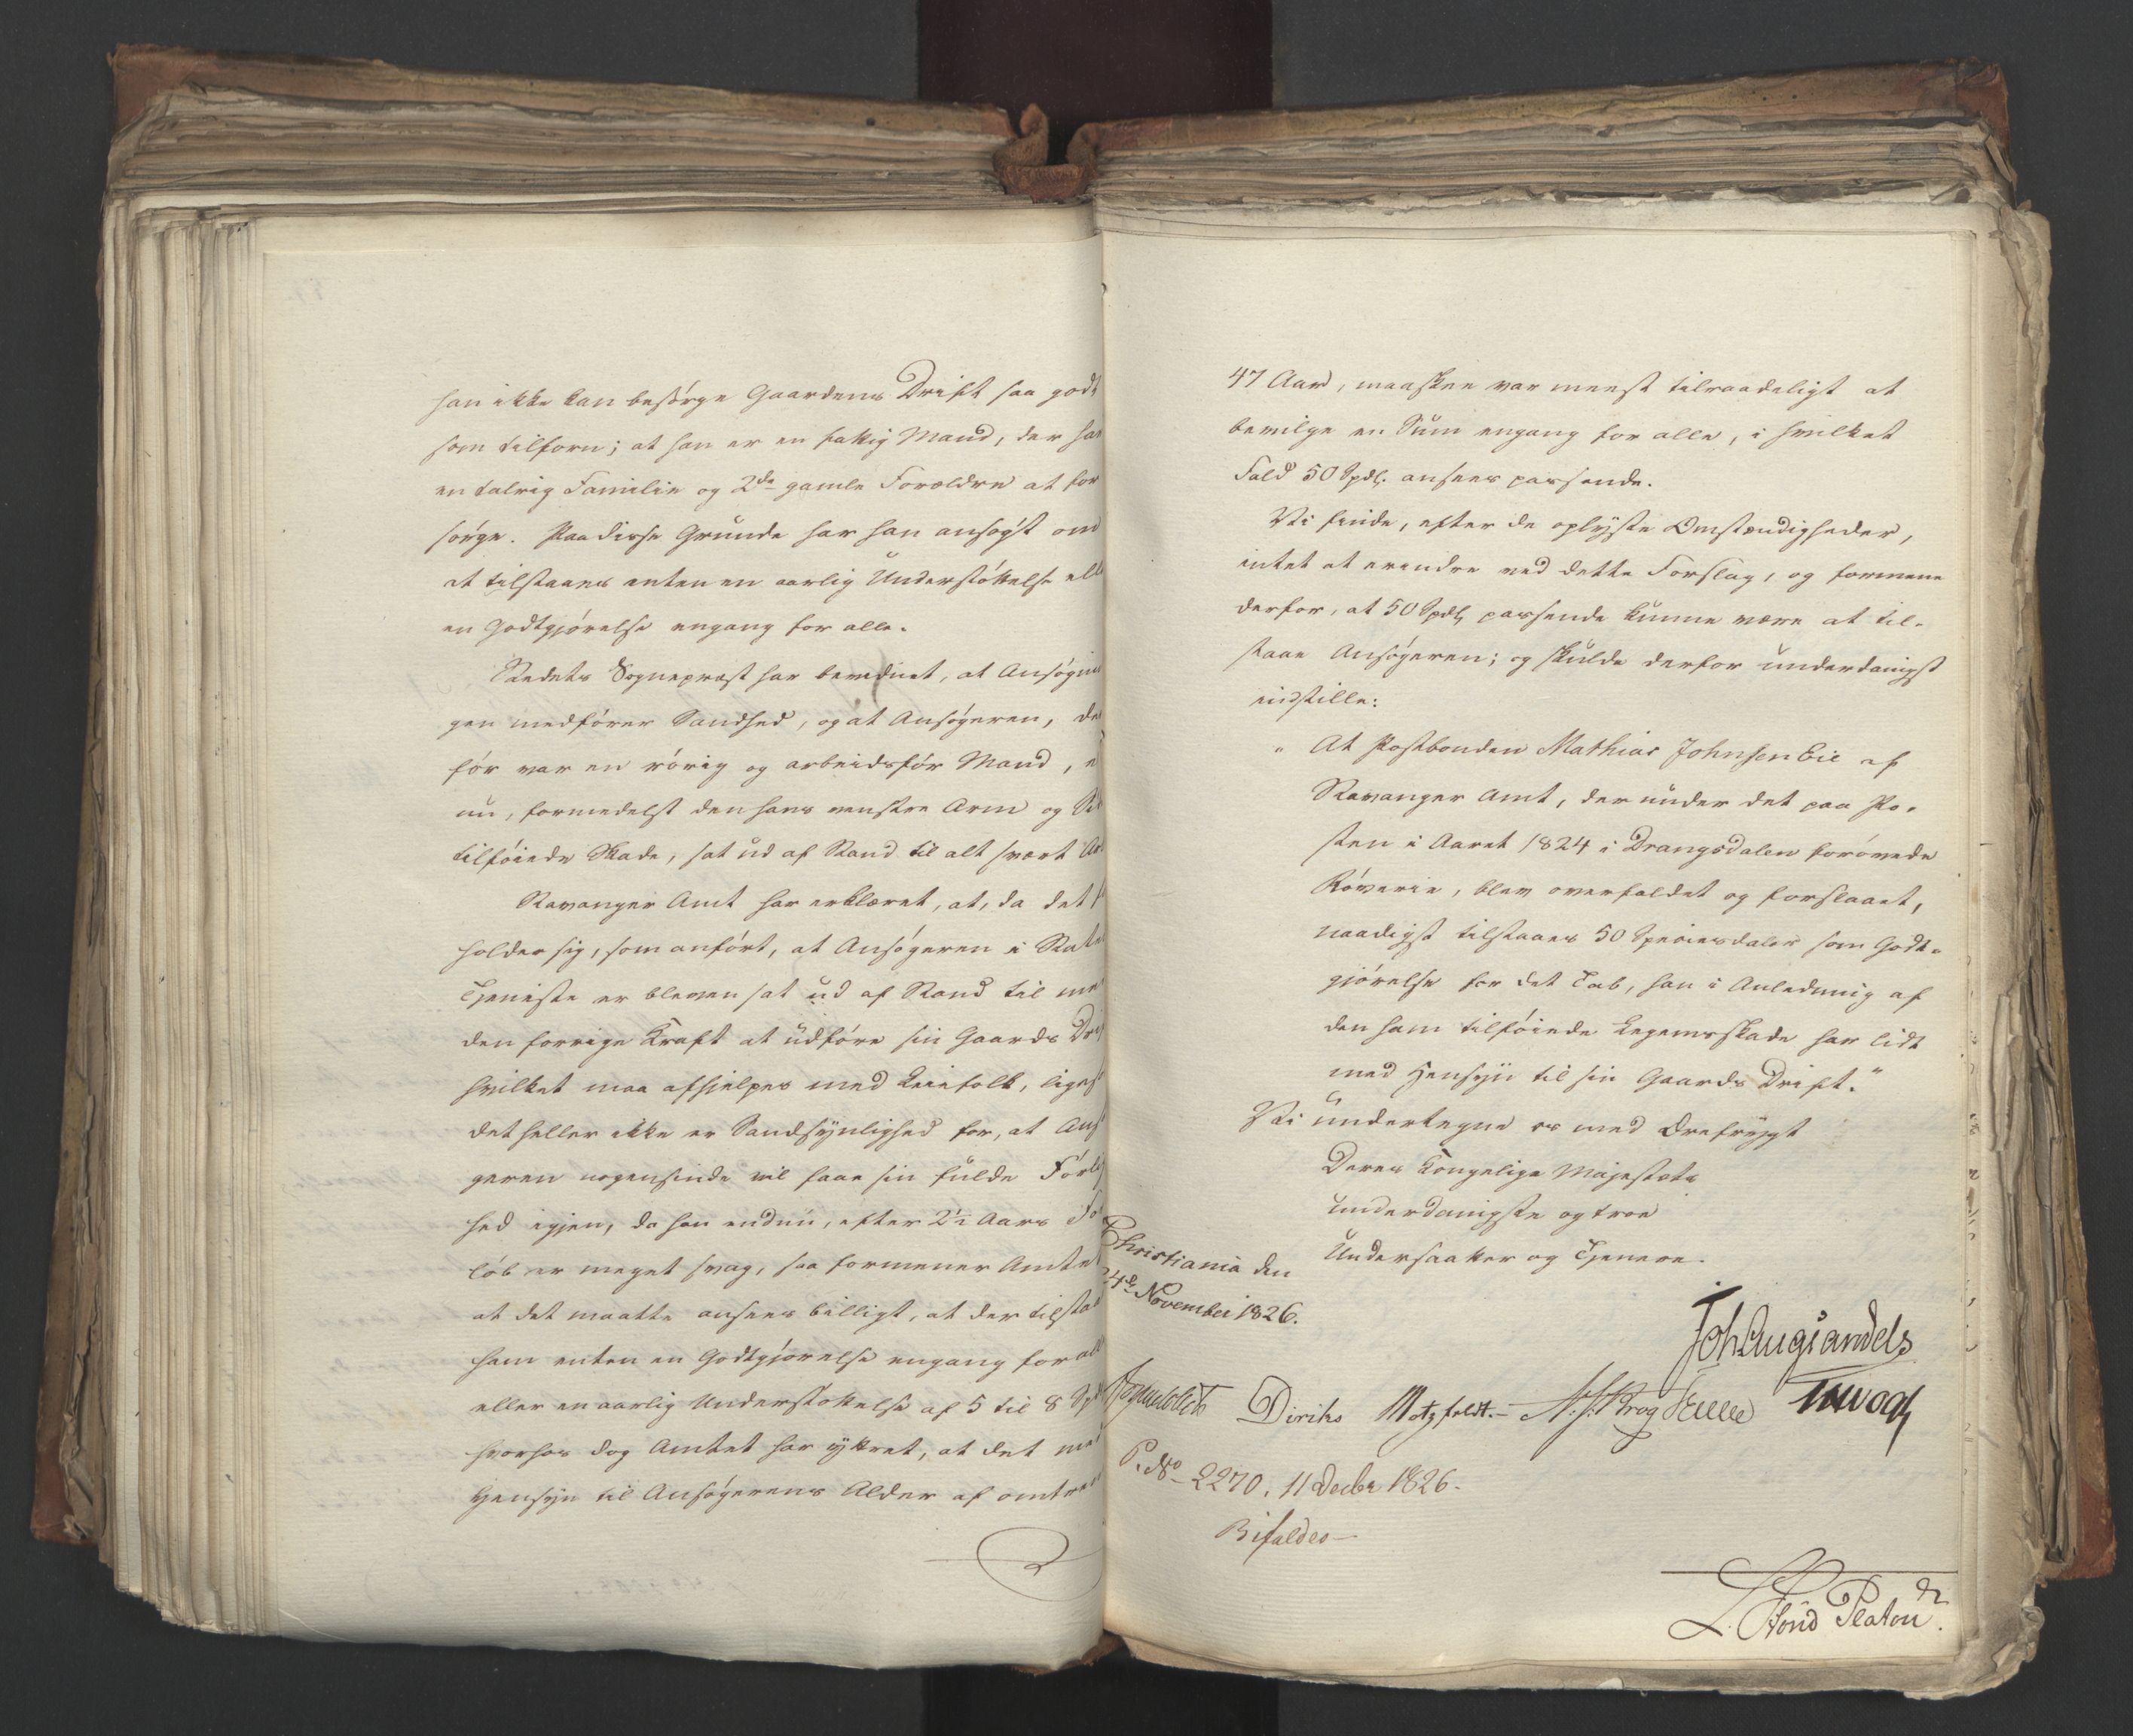 han ikke kan besørge Gaardens Drift saa godt
som tilforn; at han er en fattig Mand, der har
en talrig Familie og 2de gamle Forældre at for
sørge. Paa disse Grunde har han ansøgt om
at tilstaaes enten en aarlig Understøttelse elle
en Godtgjørelse engang for alle.
Stedets Sognepræst har bevidnet, at Ansøgnin
gen medfører Sandhed, og at Ansøgeren, der
før var en rørig og arbeidsfør Mand, e
nu, formedelst den hans venstre Arm og Si
tilføiede Skade, sat ud af Stand til alt svært Ar
Stavanger Amt har erklæret, at, da det f
holder sig, som anført, at Ansøgeren i State
Tjeneste er bleven sat ud af Stand til med
den forrige Kraft at udføre sin Gaards Drif
hvilket maa afhjelpes med Leiefolk, liges
det heller ikke er Sandsynlighed for, at Ans
geren nogensinde vil faae sin fulde Førlig
hed igjen, da han endnu, efter 2½ Aars For
løb er meget svag, saa formener Amtet
at det maatte ansees billigt, at der tilstaa
ham enten en Godtgjørelse engang for alle
eller en aarlig Understøttelse af 5 til 8 Spd
hvorhos dog Amtet har yttret, at det med
Hensyn til Ansøgerens Alder af omtren
47 Aar, maaskee var meest tilraadeligt at
bevilge en Sum engang for alle, i hvilket
Fald 50 Spdl. ansees passende.
Vi finde, efter de oplyste Omstændigheder,
intet at erindre ved dette Forslag, og formene
derfor, at 50 Spdl. passende kunne være at til-
staae Ansøgeren; og skulde derfor underdanigst
indstille:
" At Postbonden Mathias Johnsen Eie af
Stavanger Amt, der under det paa Po-
sten i Aaret 1824 i Drangsdalen forøvede
Røverie, blev overfaldet og forslaaet,
naadigst tilstaaes 50 Speciesdaler som Godt-
gjørelse for det Tab, han i Anledning af
den ham tilføiede Legemsskade har lidt
med Hensyn til sin Gaards Drift."
Vi undertegne os med Ærefrygt
Deres Kongelige Majestæts
underdanigste og troe
Undersaatter og Tjenere.
Christiania den
24de November 1826.
Joh Aug Sandels
Diriks Motzfeldt. - Krog
P. No 2270. 11 Decbr 1826.
Bifaldes -
L. Stoud Platou